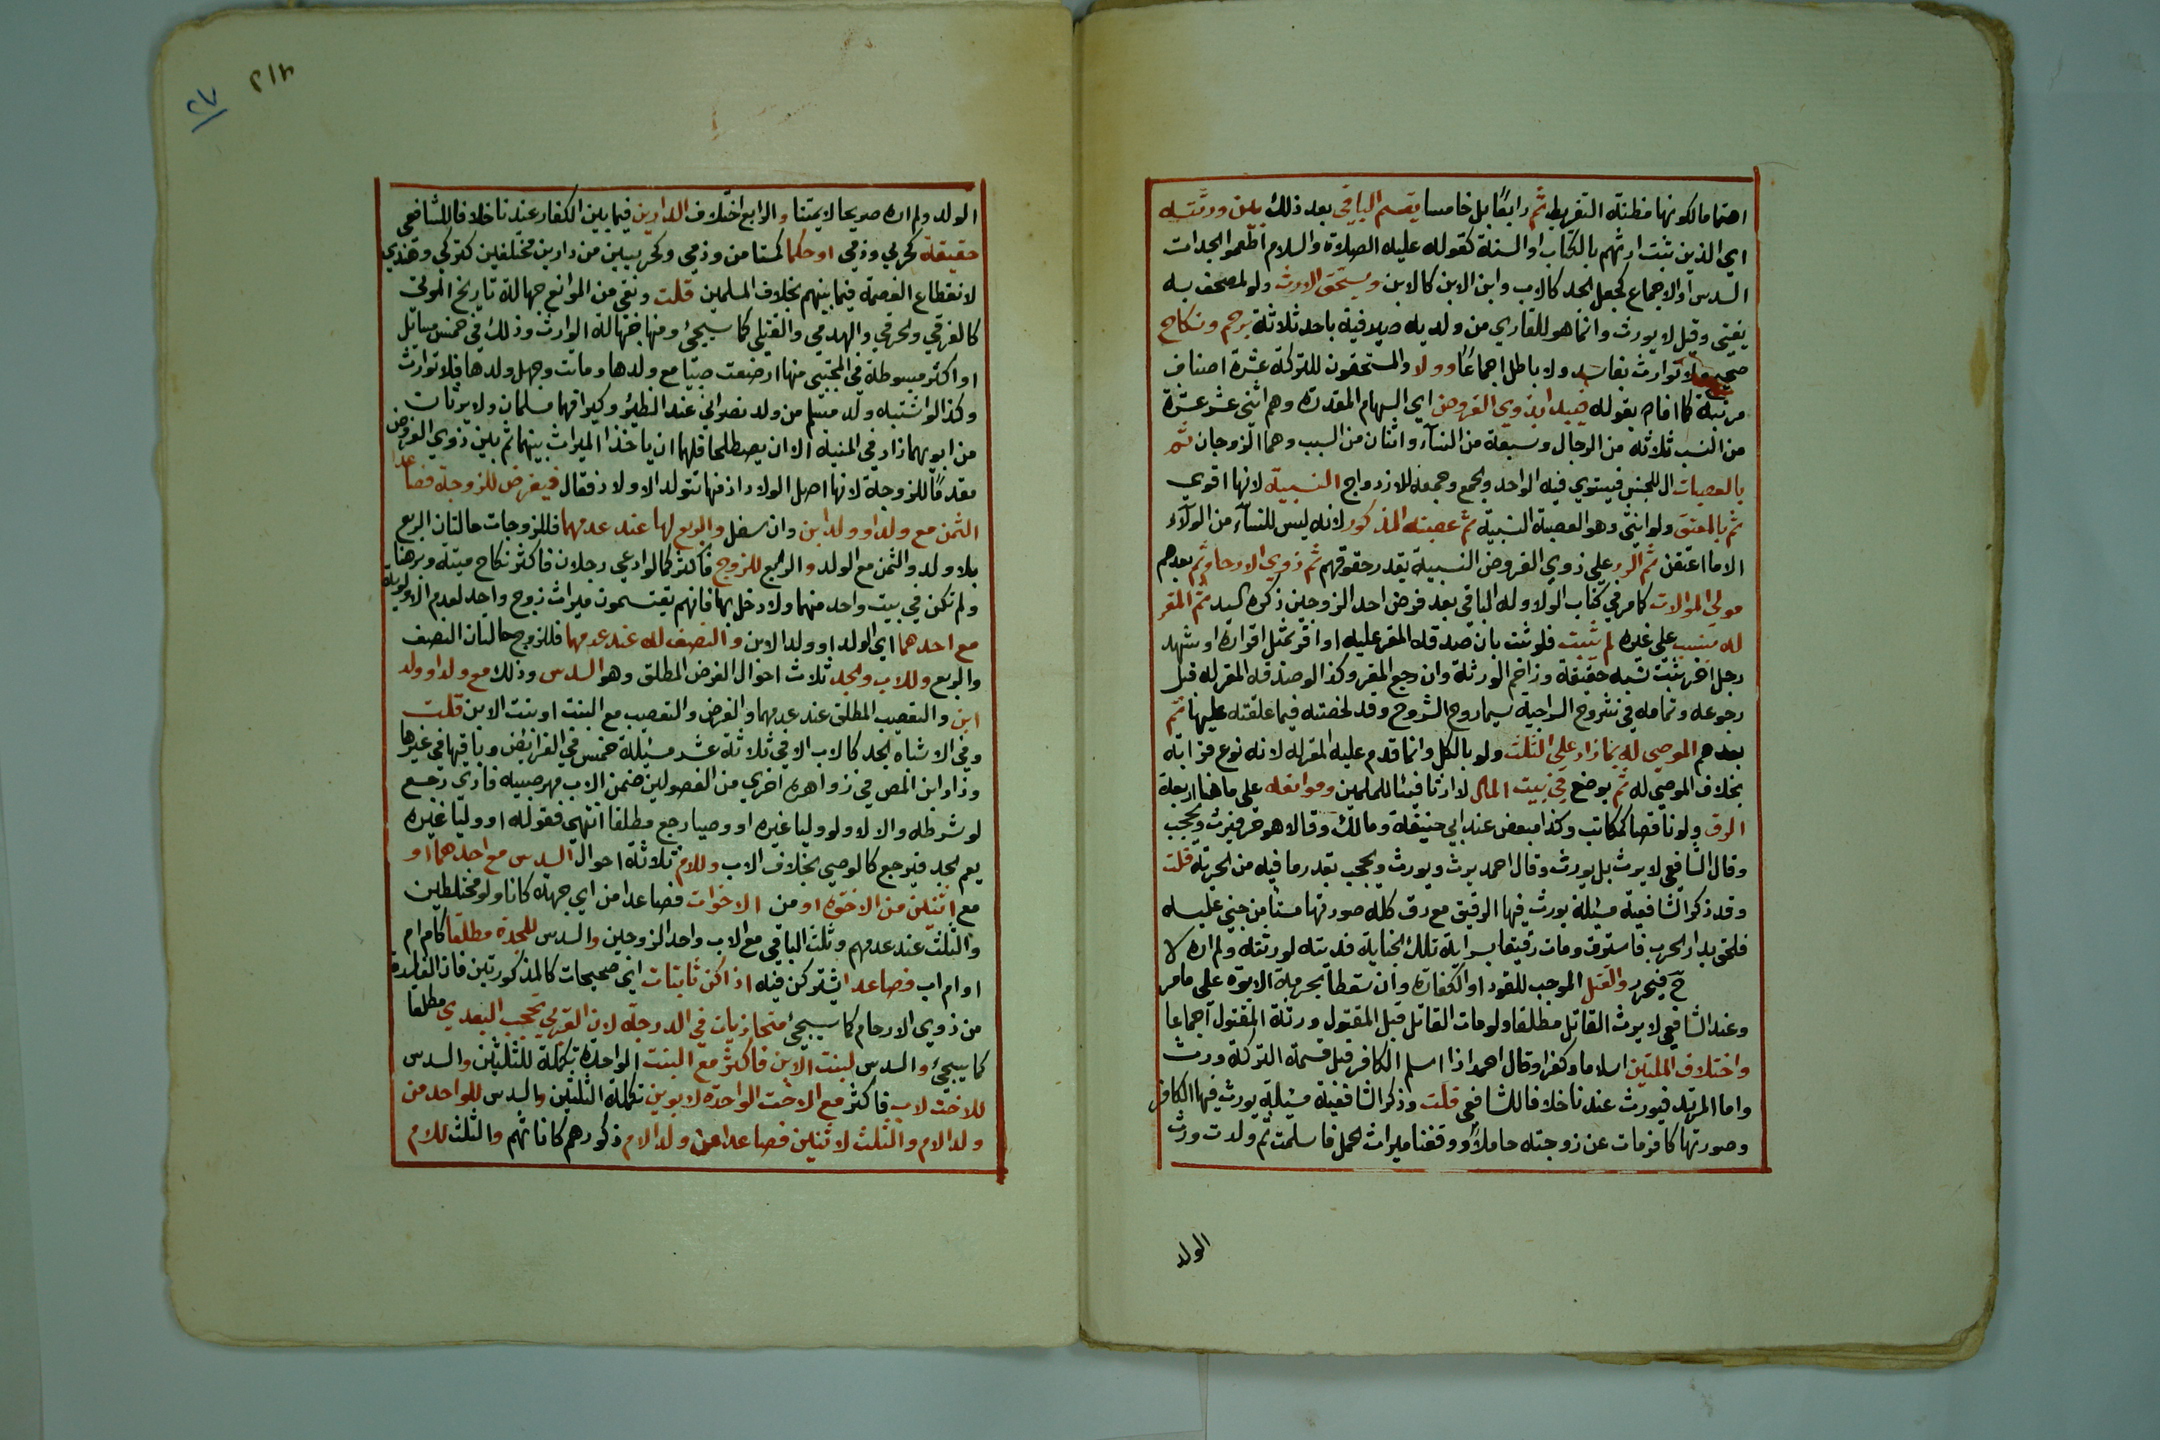 اهتماما لكونها مظنة التفريط ثم رابعا بل خامسا يقسم الباقي بعد ذلك بين ورثته
اي الذين ثبت ارثهم بالكتاب او السنة كقوله عليه الصلاة والسلام اطعموا الجدات
السدس او الاجماع كجعل الجد كالاب وابن الابن كالابن ويستحق الارث ولو لمصحف به
يفتي وقيل لا يورث وانما هو للقاري من ولديه صيرفية باحد ثلاثة برحم ونكاح
صحيح فلا توارث بفاسد ولا باطل اجماعا وولا والمستحقون للتركة عشرة اصناف
مرتبة كما افاده بقوله فيبدا بذوي الفروض اي السهام المقدرة وهم اثني عشر عشرة
من النسب ثلاثة من الرجال وسبعة من النسآء واثنان من السبب وهما الزوجان ثم
بالعصبات ال للجنس فيستوي فيه الواحد والجمع وجمعه للازدواج النسبية لانها اقوي
ثم بالمعتق ولو انثي وهو العصبة السببية ثم عصبته الذكور لانه ليس للنسآء من الولاء
الا ما اعتقن ثم الرد علي ذوي الفروض النسبية بقدر حقوقهم ثم ذوي الارحام ثم بعدهم
مولي الموالات كما مر في كتاب الولا وله الباقي بعد فرض احد الزوجين ذكره السيد ثم المقر
له بنسب علي غيره لم يثبت فلو ثبت بان صدقه المقر عليه او اقر بمثل اقراره او شهد
رجل اخر ثبت نسبه حقيقة وزاحم الورثة وان رجع المقر وكذا لو صدقه المقر له قبل
رجوعه وتمامه في شروح السراجية سيما روح الشروح وقد لخصته فيما علقته عليها ثم
بعدهم الموصي له بما زاد علي الثلث ولو بالكل وانما قدم عليه المقر له لانه نوع قرابة
بخلاف الموصي له ثم يوضع في بيت المال لا ارثا فيئا للمسلمين وموانعه علي ما هنا اربعة
الرق ولو ناقصا كمكاتب وكذا مبعض عند ابي حنيفة ومالك وقالا هو حر فيرث ويحجب
وقال الشافعي لا يرث بل يورث وقال احمد يرث ويورث ويحجب بقدر ما فيه من الحرية قلت
وقد ذكر الشافعية مسئلة يورث فيها الرقيق مع رق كله صورتها مستامن جني عليه
فلحق بدار الحرب فاسترق ومات رقيقا بسراية تلك الجناية فديته لورثته ولم اره لا
ح فيحرر والقتل الموجب للقود او الكفارة وان سقطا بحرمة الابوة علي ما مر
وعند الشافعي لا يرث القاتل مطلقا ولو مات القاتل قبل المقتول ورثة المقتول اجماعا
واختلاف الملتين اسلاما وكفرا وقال احمد اذا اسلم الكافر قبل قسمة التركة ورث
واما المرتد فيورث عندنا خلافا للشافعي قلت وذكر الشافعية مسئلة يورث فيها الكافر
وصورتها كافر مات عن زوجته حاملا ووقفنا ميراث الحمل فاسلمت ثم ولدت ورث
الولد
٢١٣
٢٧
الولد ولم اره صريحا لايمتنا والرابع اختلاف الدارين فيما بين الكفار عندنا خلافا للشافعي
حقيقة كحربي وذمي او حكما كمستامن وذمي وكحربيين من دارين مختلفين كتركي وهندي
لانقطاع العصمة فيما بينهم بخلاف المسلمين قلت وبقي من الموانع جهالة تاريخ الموتي
كالغرقي والحرقي والهدمي والقتلي كما سيجئ ومنها جهالة الوارث وذلك في خمس مسايل
او اكثر مبسوطة في المجتبي منها ارضعت صبيا مع ولدها وماتت وجهل ولدها فلا توارث
وكذا لو اشتبه ولد مسلم من ولد نصراني عند الظئر وكبرا فهما مسلمان ولا يرثان
من ابويهما زاد في المنية الا ان يصطلحا فلهما ان ياخذا الميراث بينهما ثم بين ذوي الفروض
مقدما للزوجة لانها اصل الولاد اذ منها تتولد الاولاد فقال فيفرض للزوجة فصاعدا
الثمن مع ولد او ولد ابن وان سفل والربع لها عند عدمهما فللزوجات حالتان الربع
بلا ولد والثمن مع الولد والربع للزوج فاكثر كما لو ادعي رجلان فاكثر نكاح ميتة وبرهنا
ولم تكن في بيت واحد منهما ولا دخل بها فانهم يقتسمون ميراث زوج واحد لعدم الاولوية
مع احدهما اي الولد او ولد الابن والنصف له عند عدمهما فللزوج حالتان النصف
والربع وللاب والجد ثلاث احوال الفرض المطلق وهو السدس وذلك مع ولد او ولد
ابن والتعصيب المطلق عند عدمهما والفرض والتعصيب مع البنت او بنت الابن قلت
وفي الاشباه الجد كالاب الا في ثلاثة عشر مسئلة خمس في الفرائض وباقيها في غيرها
وزاد ابن المص في زواهره اخري من الفصولين ضمن الاب مهر صبيه فادي رجع
لو شرطه والا لا ولو وليا غيره او وصيا رجع مطلقا انتهي فقوله او وليا غيره
يعم الجد فيرجع كالوصي بخلاف الاب وللام ثلاثة احوال السدس مع احدهما او
مع اثنين من الاخوة او من الاخوات فصاعدا من اي جهة كانا ولو مختلطين
والثلث عند عدمهم وثلث الباقي مع الاب واحد الزوجين والسدس للجدة مطلقا كام ام
او ام اب فصاعدا يشتركن فيه اذا كن ثابتات اي صحيحات كالمذكورتين فان الفاسدة
من ذوي الارحام كما سيجئ متحاذيات في الدرجة لان القربي تحجب البعدي مطلقا
كما سيجئ والسدس لبنت الابن فاكثر مع البنت الواحدة تكملة للثلثين والسدس
للاخت لاب فاكثر مع الاخت الواحدة لابوين تكملة الثلثين والسدس للواحد من
ولد الام والثلث لاثنين فصاعدا من ولد الام ذكورهم كاناثهم والثلث للام